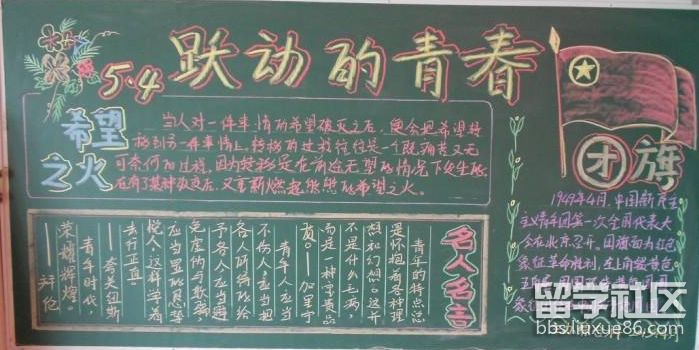 5.4 跃动的青春
希望
之火
当人对一件事情的希望破灭之后,便会把希望转
移到另一件事情上,转移的过程往往是一个既痛苦又无
可奈何的过程,因为转移是在前途无望的情况下发生的
在有了某种改变后,又重新燃起熊熊的希望之火。
名人名言
青年的特点总
是怀抱着各种理
想和幻想。这并
不是什么毛病,
而是一种宝贵品
质。——加里宁
青年人应当
不伤人,应当把
各人所得的给
予各人,应当避
免虚伪与欺骗,
应当显得恳挚
悦人,这样学着
去行正直。
——夸美纽斯
青年时代,
荣耀辉煌。
——拜伦
团旗
1949年4月,中国新民主
主义青年团第一次全国代表大
会在北京召开。团旗面为红色
象征革命胜利,左上角缀黄色
五角星
象征
留学社区
bbs.liuxue86.com